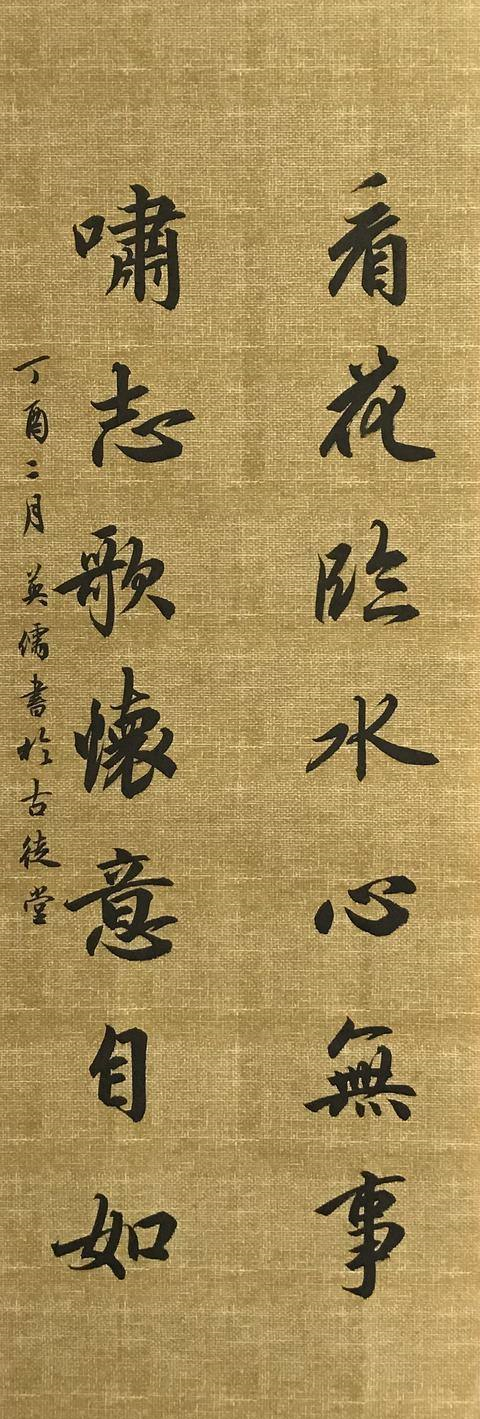 看花臨水心無事
嘯志歌懷意自如
丁酉二月 英儒書於古徒堂